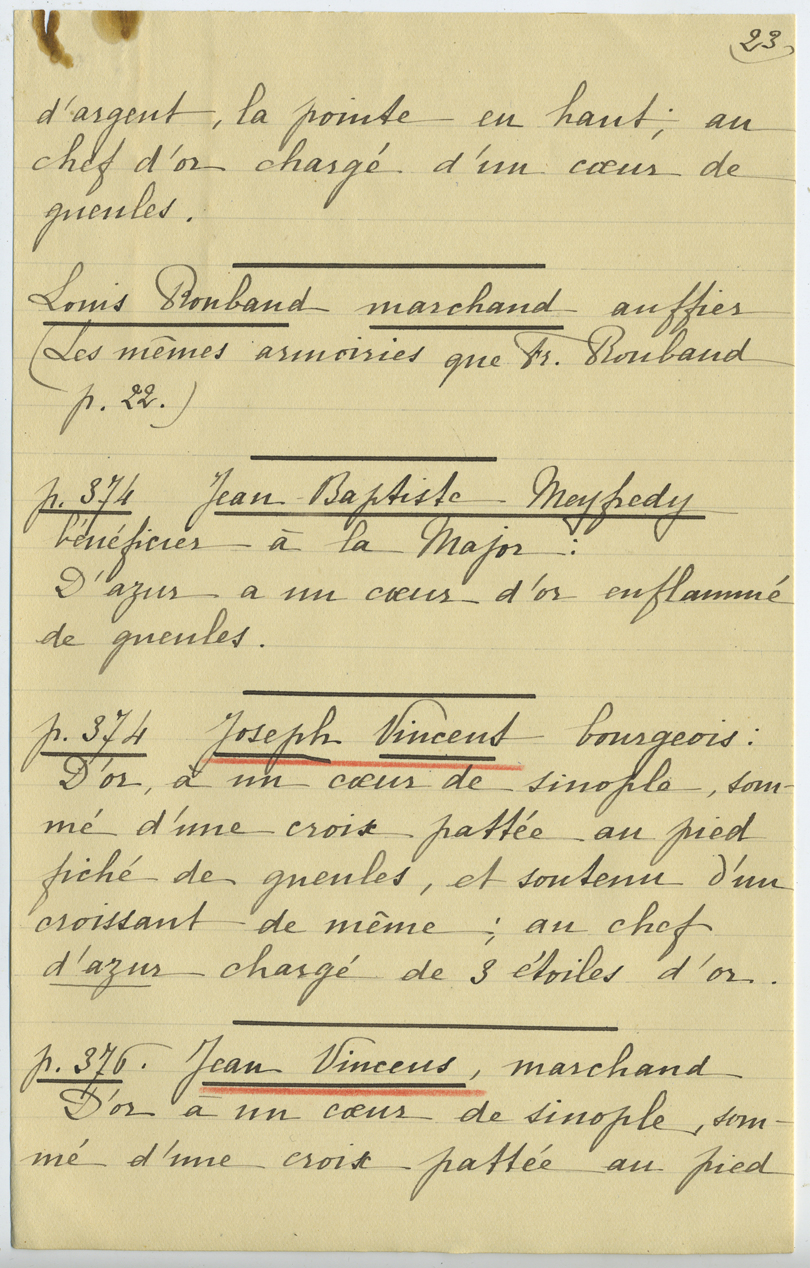 23
d'argent, la pointe en haut; au
chef d'or chargé d'un cœur de
gueules.
Louis Roubaud marchand auffier
(Les mêmes armoiries que Fr. Roubaud
p. 22.)
p. 374 Jean-Baptiste Meyfredy
bénéficier à la Major :
D'azur a un cœur d'or enflammé
de gueules.
p. 374 Joseph Vincent bourgeois :
D'or, à un cœur de sinople, som-
mé d'une croix pattée au pied
fiché de gueules, et soutenu d'un
croissant de même ; au chef
d'azur chargé de 3 étoiles d'or.
p. 376. Jean Vincens, marchand
D'or à un cœur de sinople, som-
mé d'une croix pattée au pied